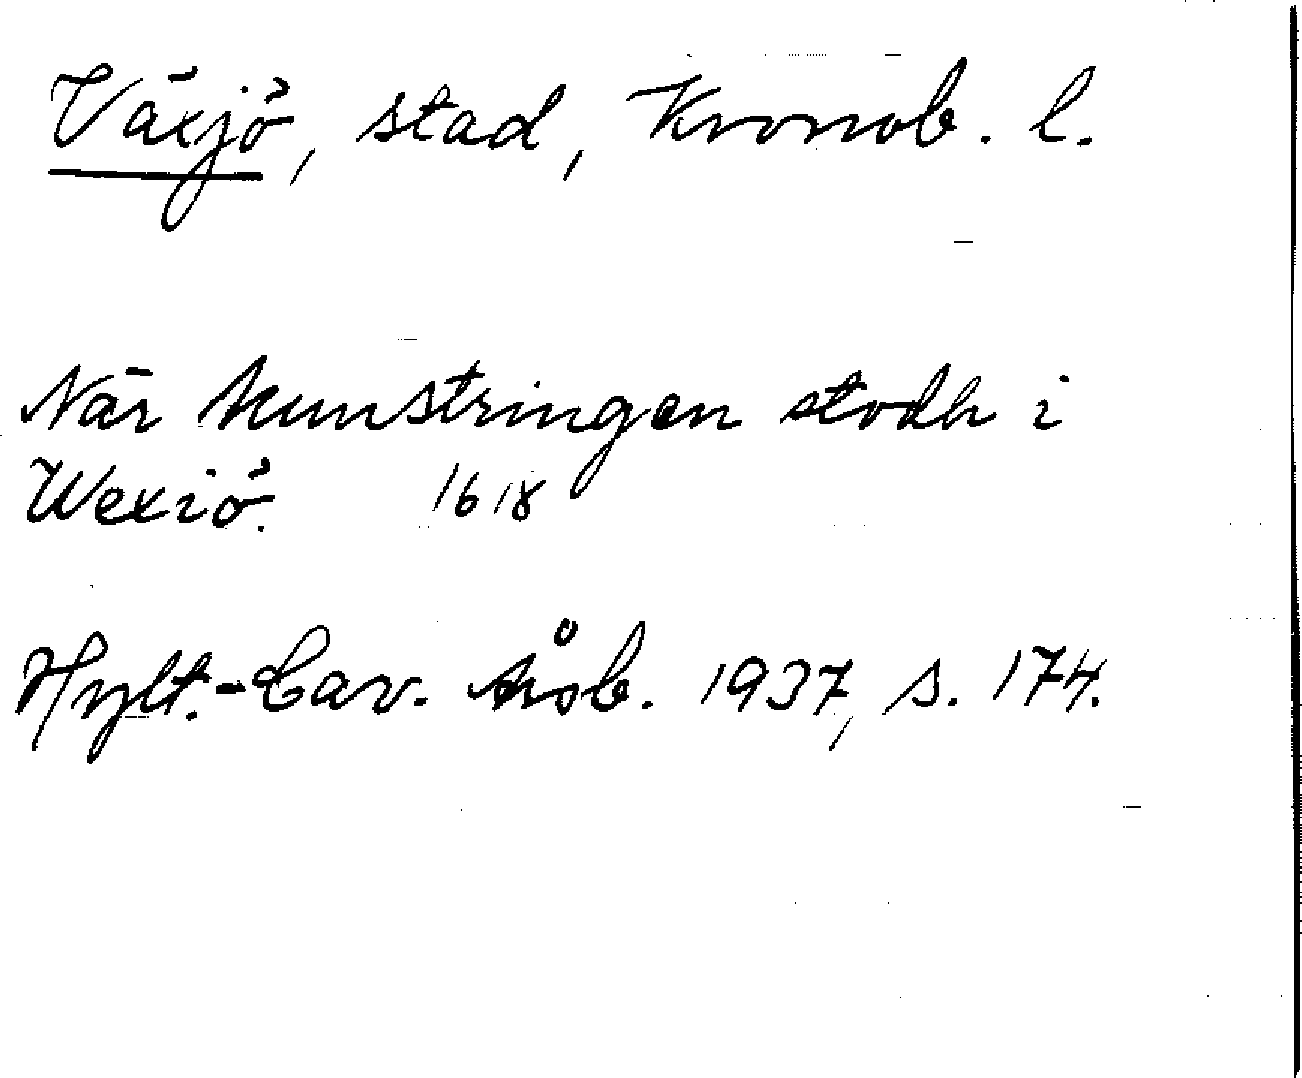 Växjö, stad, Kronob. l.
När kunstringen stodh i
Wexiö. 1618
Hylt.-Cav. årsb. 1937, s. 174.